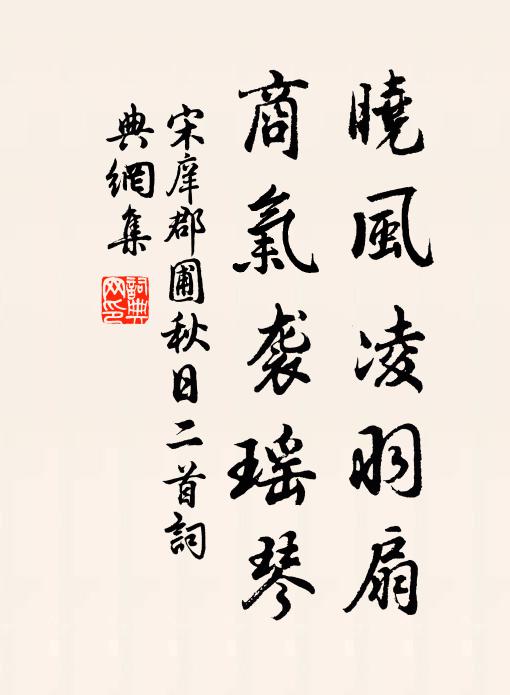 曉風凌羽扇
商氣袭瑶琴
宋庠郡圃秋日二首詞
典網集
詞典
网印